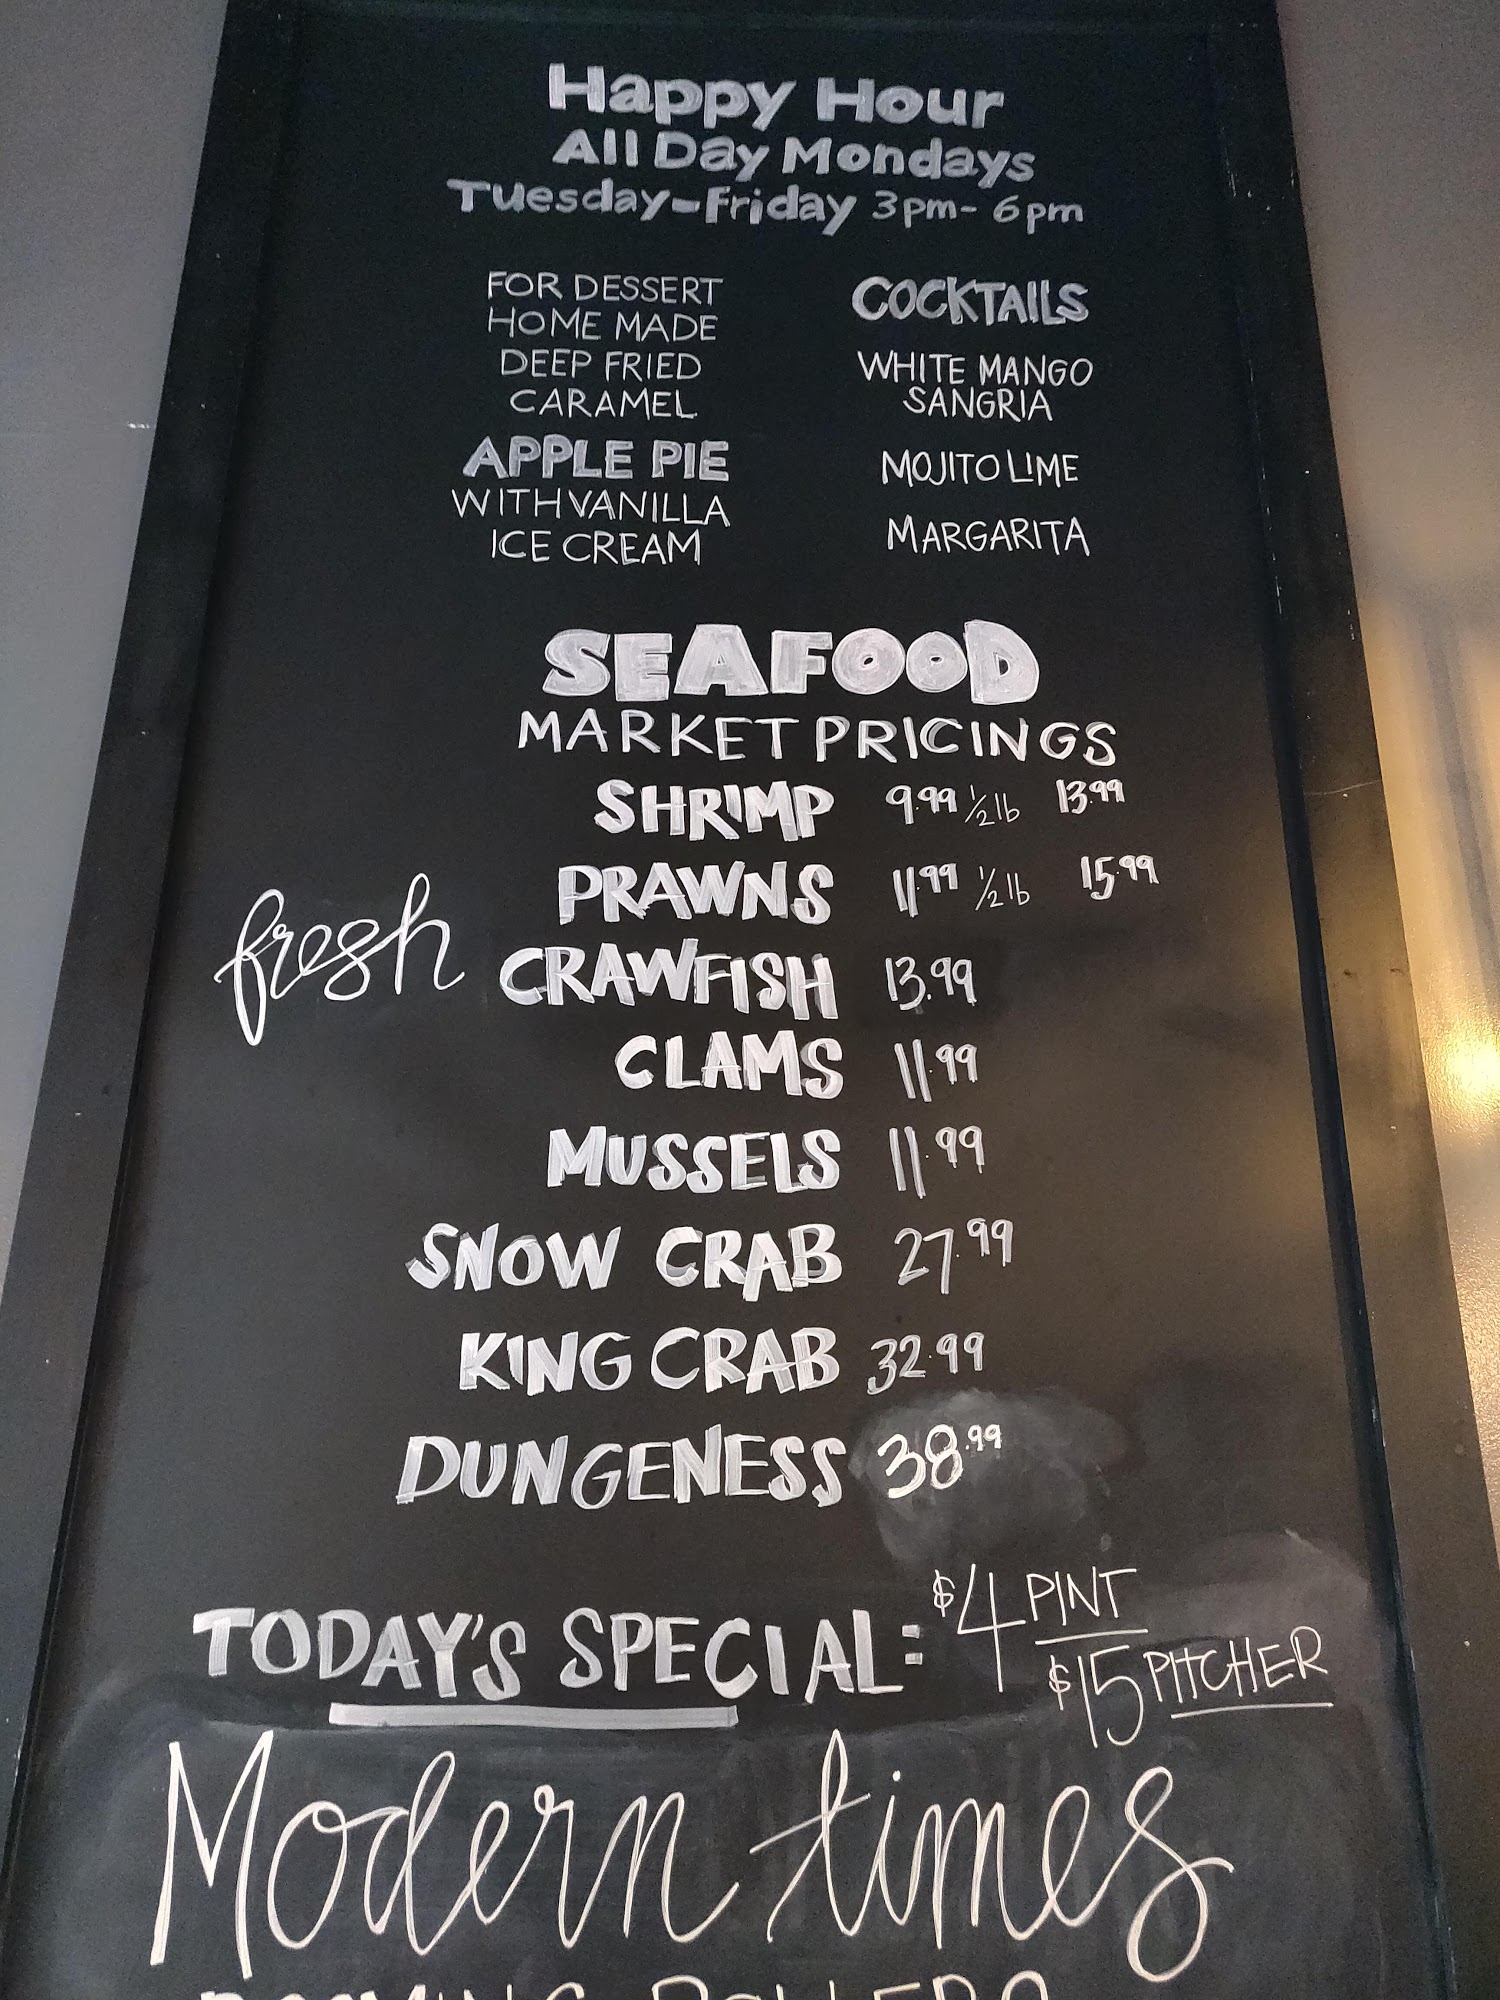 Happy Hour
All Day Mondays
Tuesday-Friday 3pm-6pm
FOR DESSERT
HOME MADE
DEEP FRIED
CARAMEL
APPLE PIE
WITH VANILLA
ICE CREAM
COCKTAILS
WHITE MANGO
SANGRIA
MOJITO LIME
MARGARITA
SEAFOOD
MARKET PRICINGS
SHRIMP 9.99 1/2 lb 13.99
PRAWNS 11.99 1/2 lb 15.99
fresh CRAWFISH 13.99
CLAMS 11.99
MUSSELS 11.99
SNOW CRAB 27.99
KING CRAB 32.99
DUNGENESS 38.99
TODAY'S SPECIAL: $4 PINT
$15 PITCHER
Modern times